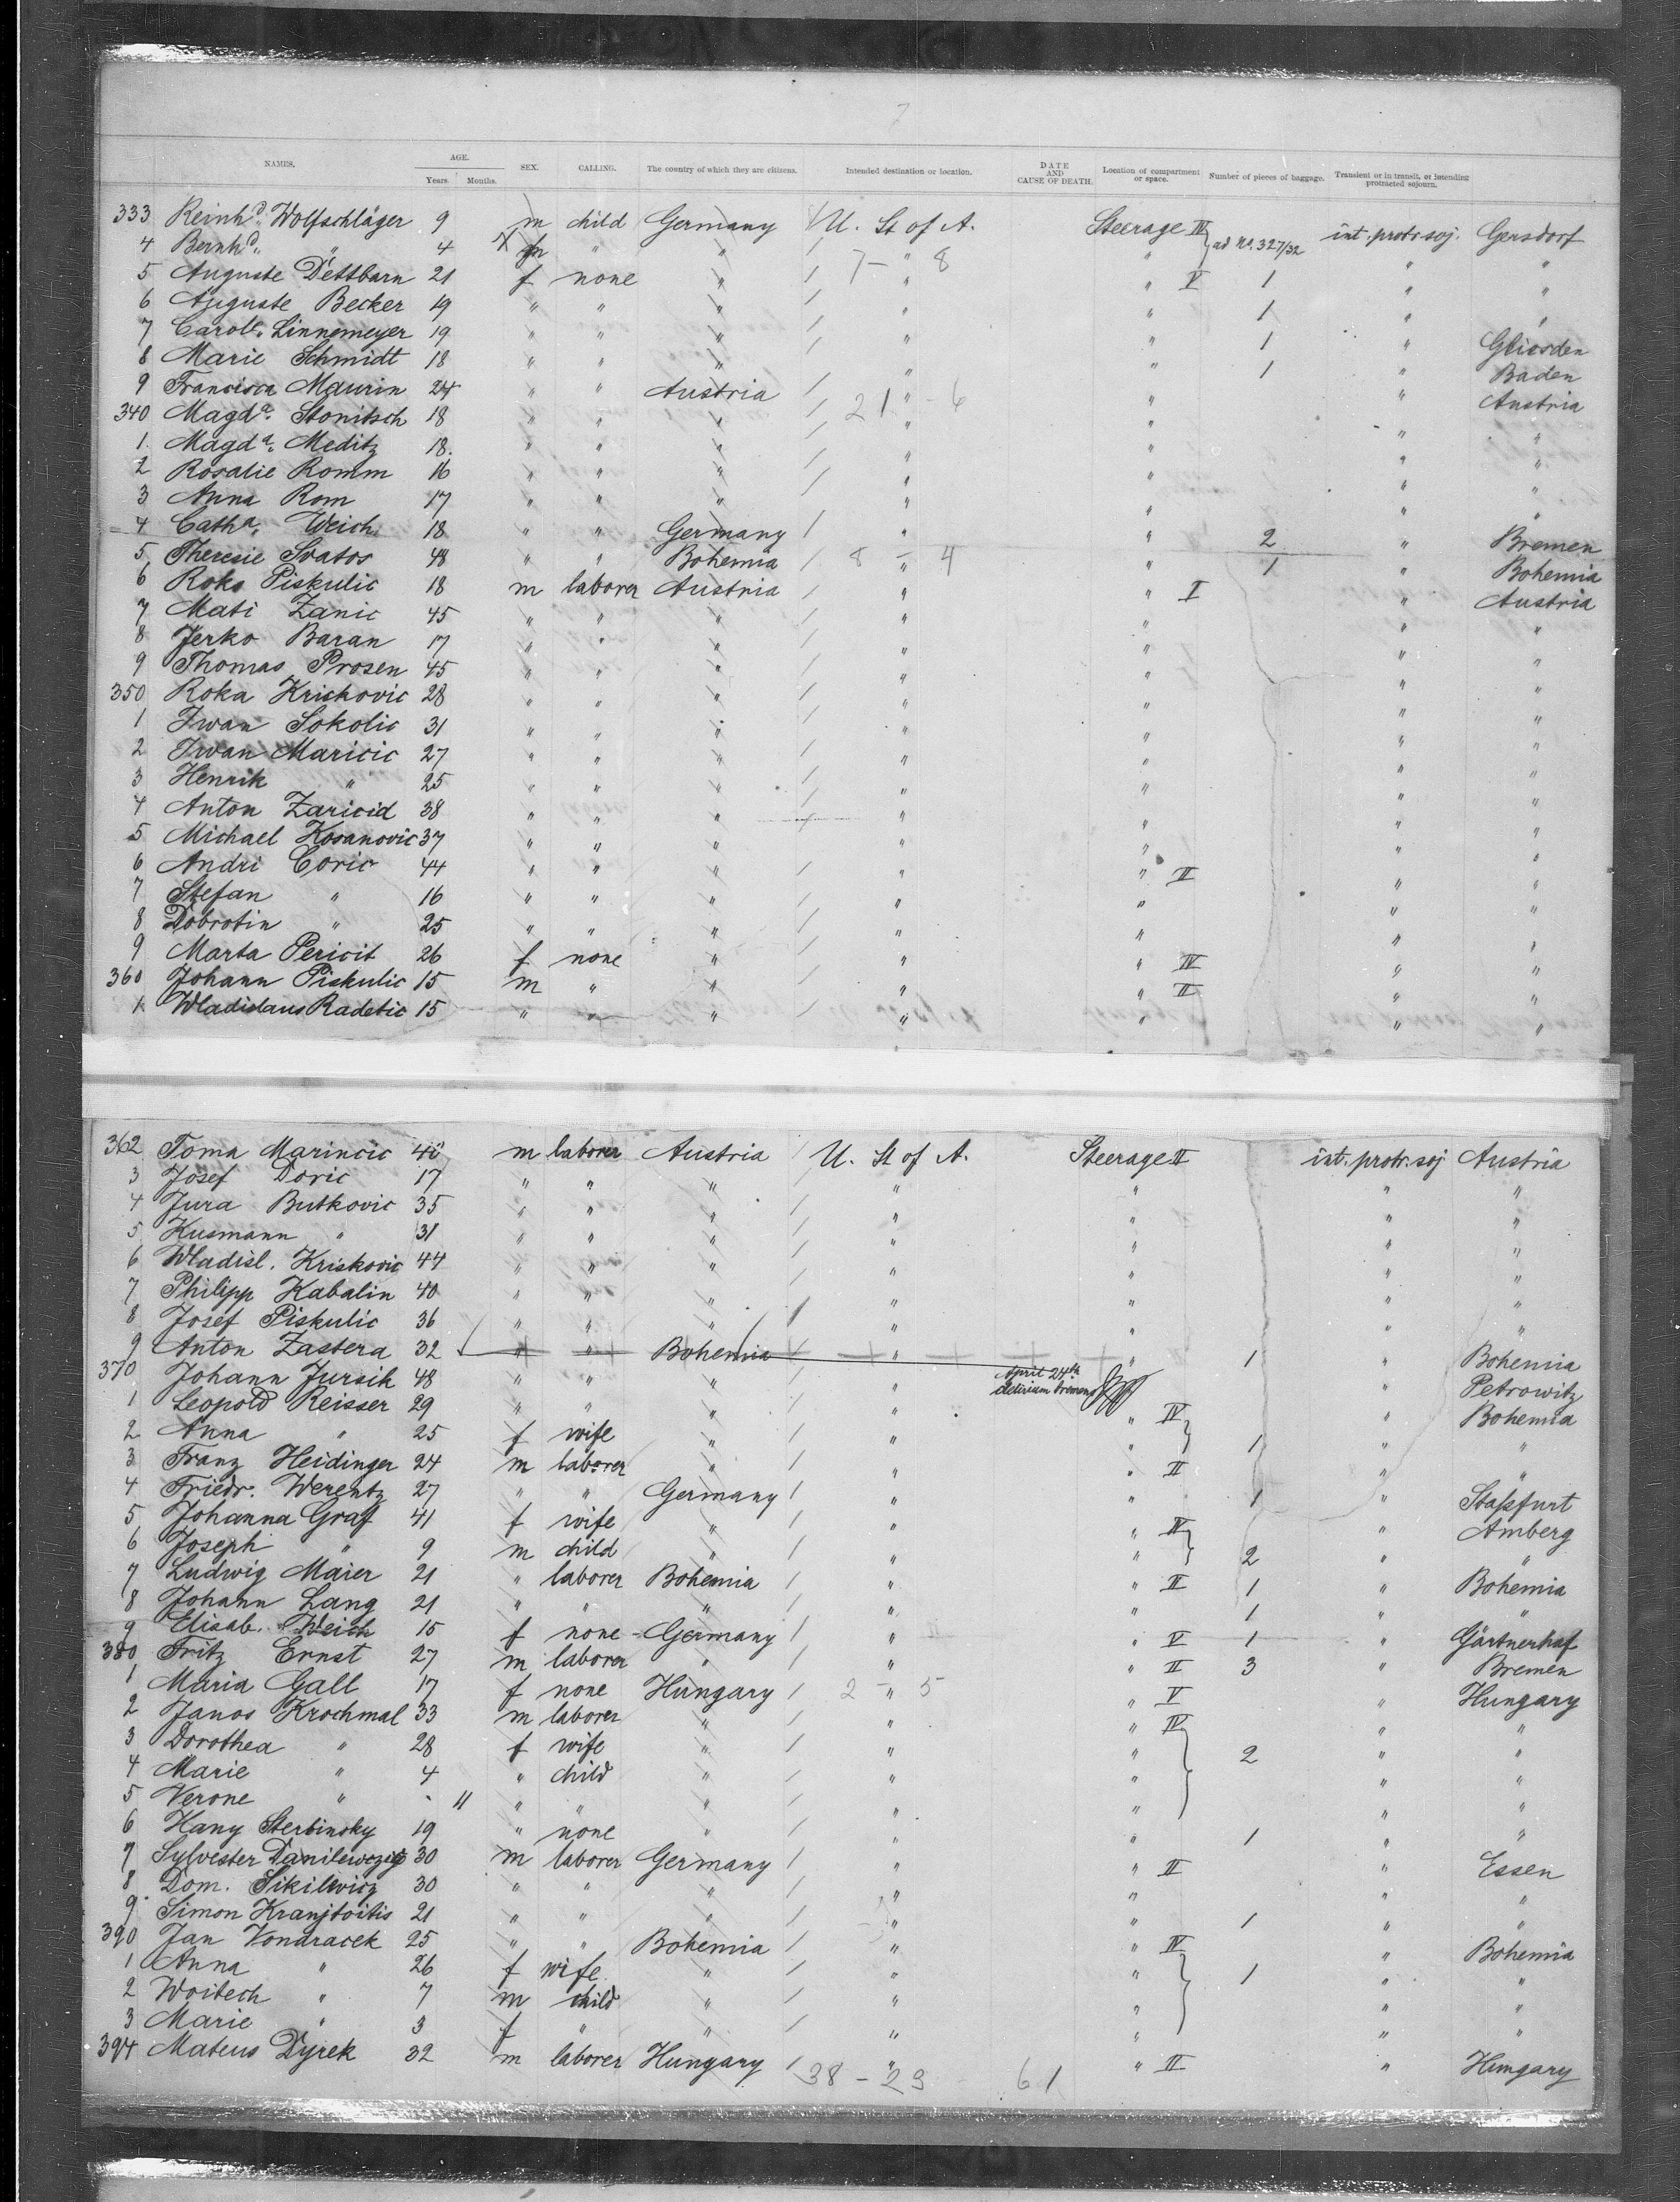 7
NAMES. AGE. Years. Months. SEX. CALLING. The country of which they are citizens. Intended destination or location. DATE AND CAUSE OF DEATH. Location of compartment or space. Number of pieces of baggage. Transient or in transit, or intending protracted sojourn.
333 Reinhd. Wolfschläger 9 m child Germany / U. St of A. Steerage IV int. protr. soj. Gersdorf
4 Bernhd. " 4 m " " / " " ad No. 327/32 " "
5 Auguste Dettbarn 21 f none " / 7 - " 8 " V 1 " "
6 Auguste Becker 19 " " " / " " 1 " "
7 Carole. Linnemeyer 19 " " " / " " 1 " Gliesden
8 Marie Schmidt 18 " " " / " " 1 " Baden
9 Francisca Maurin 24 " " Austria / " " " Austria
340 Magda. Stonitsch 18 " " " / 21 " - 6 " " "
1. Magda. Meditz 18. " " " / " " " "
2 Rosalie Romm 16 " " " / " " " "
3 Anna Rom 17 " " " / " " " "
4 Catha. Weich 18 " " Germany / " " 2 " Bremen
5 Theresie Svatos 48 " " Bohemia / 8 - " 4 " 1 " Bohemia
6 Roko Piskulic 18 m laborer Austria / " " I " Austria
7 Mati Zanic 45 " " " / " " " "
8 Jerko Baran 17 " " " / " " " "
9 Thomas Prosen 45 " " " / " " " "
350 Roka Krishovic 28 " " " / " " " "
1 Iwan Sokolic 31 " " " / " " " "
2 Iwan Maricic 27 " " " / " " " "
3 Henrik " 25 " " " / " " " "
4 Anton Zaricid 38 " " " / " " " "
5 Michael Kosanovic 37 " " " " " " "
6 Andri Coric 44 " " " / " " II " "
7 Stefan " 16 " " " / " " " "
8 Dobrotin " 25 " " " / " " " "
9 Marta Pericit 26 f none " / " " IV " "
360 Johann Piskulic 15 m " " / " " II " "
1 Wladislaus Radetic 15 " " " / " " " "
362 Toma Marincic 40 m laborer Austria / U. St of A. Steerage II int. protr. soj Austria
3 Josef Doric 17 " " " / " " " "
4 Jura Butkovic 35 " " " / " " " "
5 Kusmann " 31 " " " / " " " "
6 Wladisl. Kriskovic 44 " " " / " " " "
7 Philipp Kabalin 40 " " " / " " " "
8 Josef Piskulic 36 " " " / " " " "
9 Anton Zastera 32 " " Bohemia " " 1 " Bohemia
370 Johann Jursik 48 " " " / " April 24th delirium tremens " Petrowitz
1 Leopold Reisser 29 " " " / " " IV " Bohemia
2 Anna " 25 f wife " / " " 1 " "
3 Franz Heidinger 24 m laborer " / " " II " "
4 Friedr. Werentz 27 " " Germany / " " 1 " Staßfurt
5 Johanna Graf 41 f wife " / " " IV " Amberg
6 Joseph " 9 m child " / " " 2 " "
7 Ludwig Maier 21 " laborer Bohemia / " " II 1 " Bohemia
8 Johann Lang 21 " " " / " " 1 " "
9 Elisab. Weich 15 f none Germany / " " V 1 " Gärtnerhof
380 Fritz Ernst 27 m laborer " / " " II 3 " Bremen
1 Maria Gall 17 f none Hungary / 2 - " 5 " V " Hungary
2 Janos Krochmal 33 m laborer " / " " IV " "
3 Dorothea " 28 f wife " / " " 2 " "
4 Marie " 4 " child " / " " " "
5 Verone " - 11 " " " / " " " "
6 Hany Sterbinsky 19 " none " / " " 1 " "
7 Sylvester Danilewczig 30 m laborer Germany / " " II " Essen
8 Dom. Sikilwicz 30 " " " / " " " "
9 Simon Kranjtoitis 21 " " " / " " 1 " "
390 Jan Vondracek 25 " " Bohemia / " " IV " Bohemia
1 Anna " 26 f wife " / " " 1 " "
2 Woitech " 7 m child " / " " " "
3 Marie " 3 f " " / " " " "
394 Mateus Dyrek 32 m laborer Hungary / " " II " Hungary
38 - 23 61